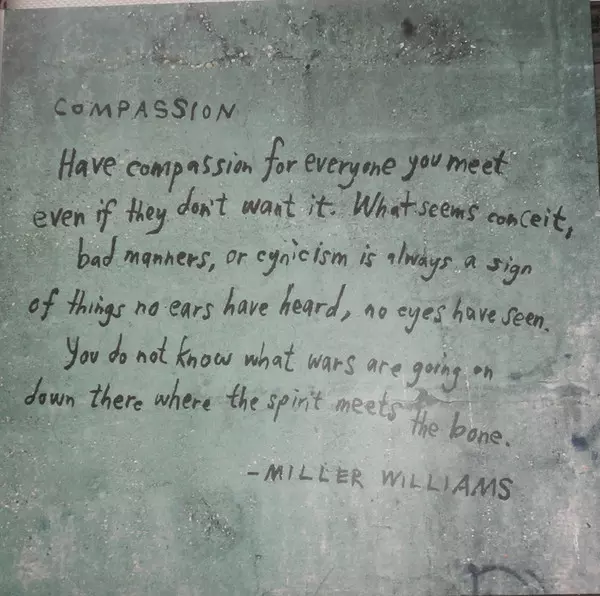 COMPASSION
Have compassion for everyone you meet
even if they don't want it. What seems conceit,
bad manners, or cynicism is always a sign
of things no ears have heard, no eyes have seen.
You do not know what wars are going on
down there where the spirit meets the bone.
-MILLER WILLIAMS